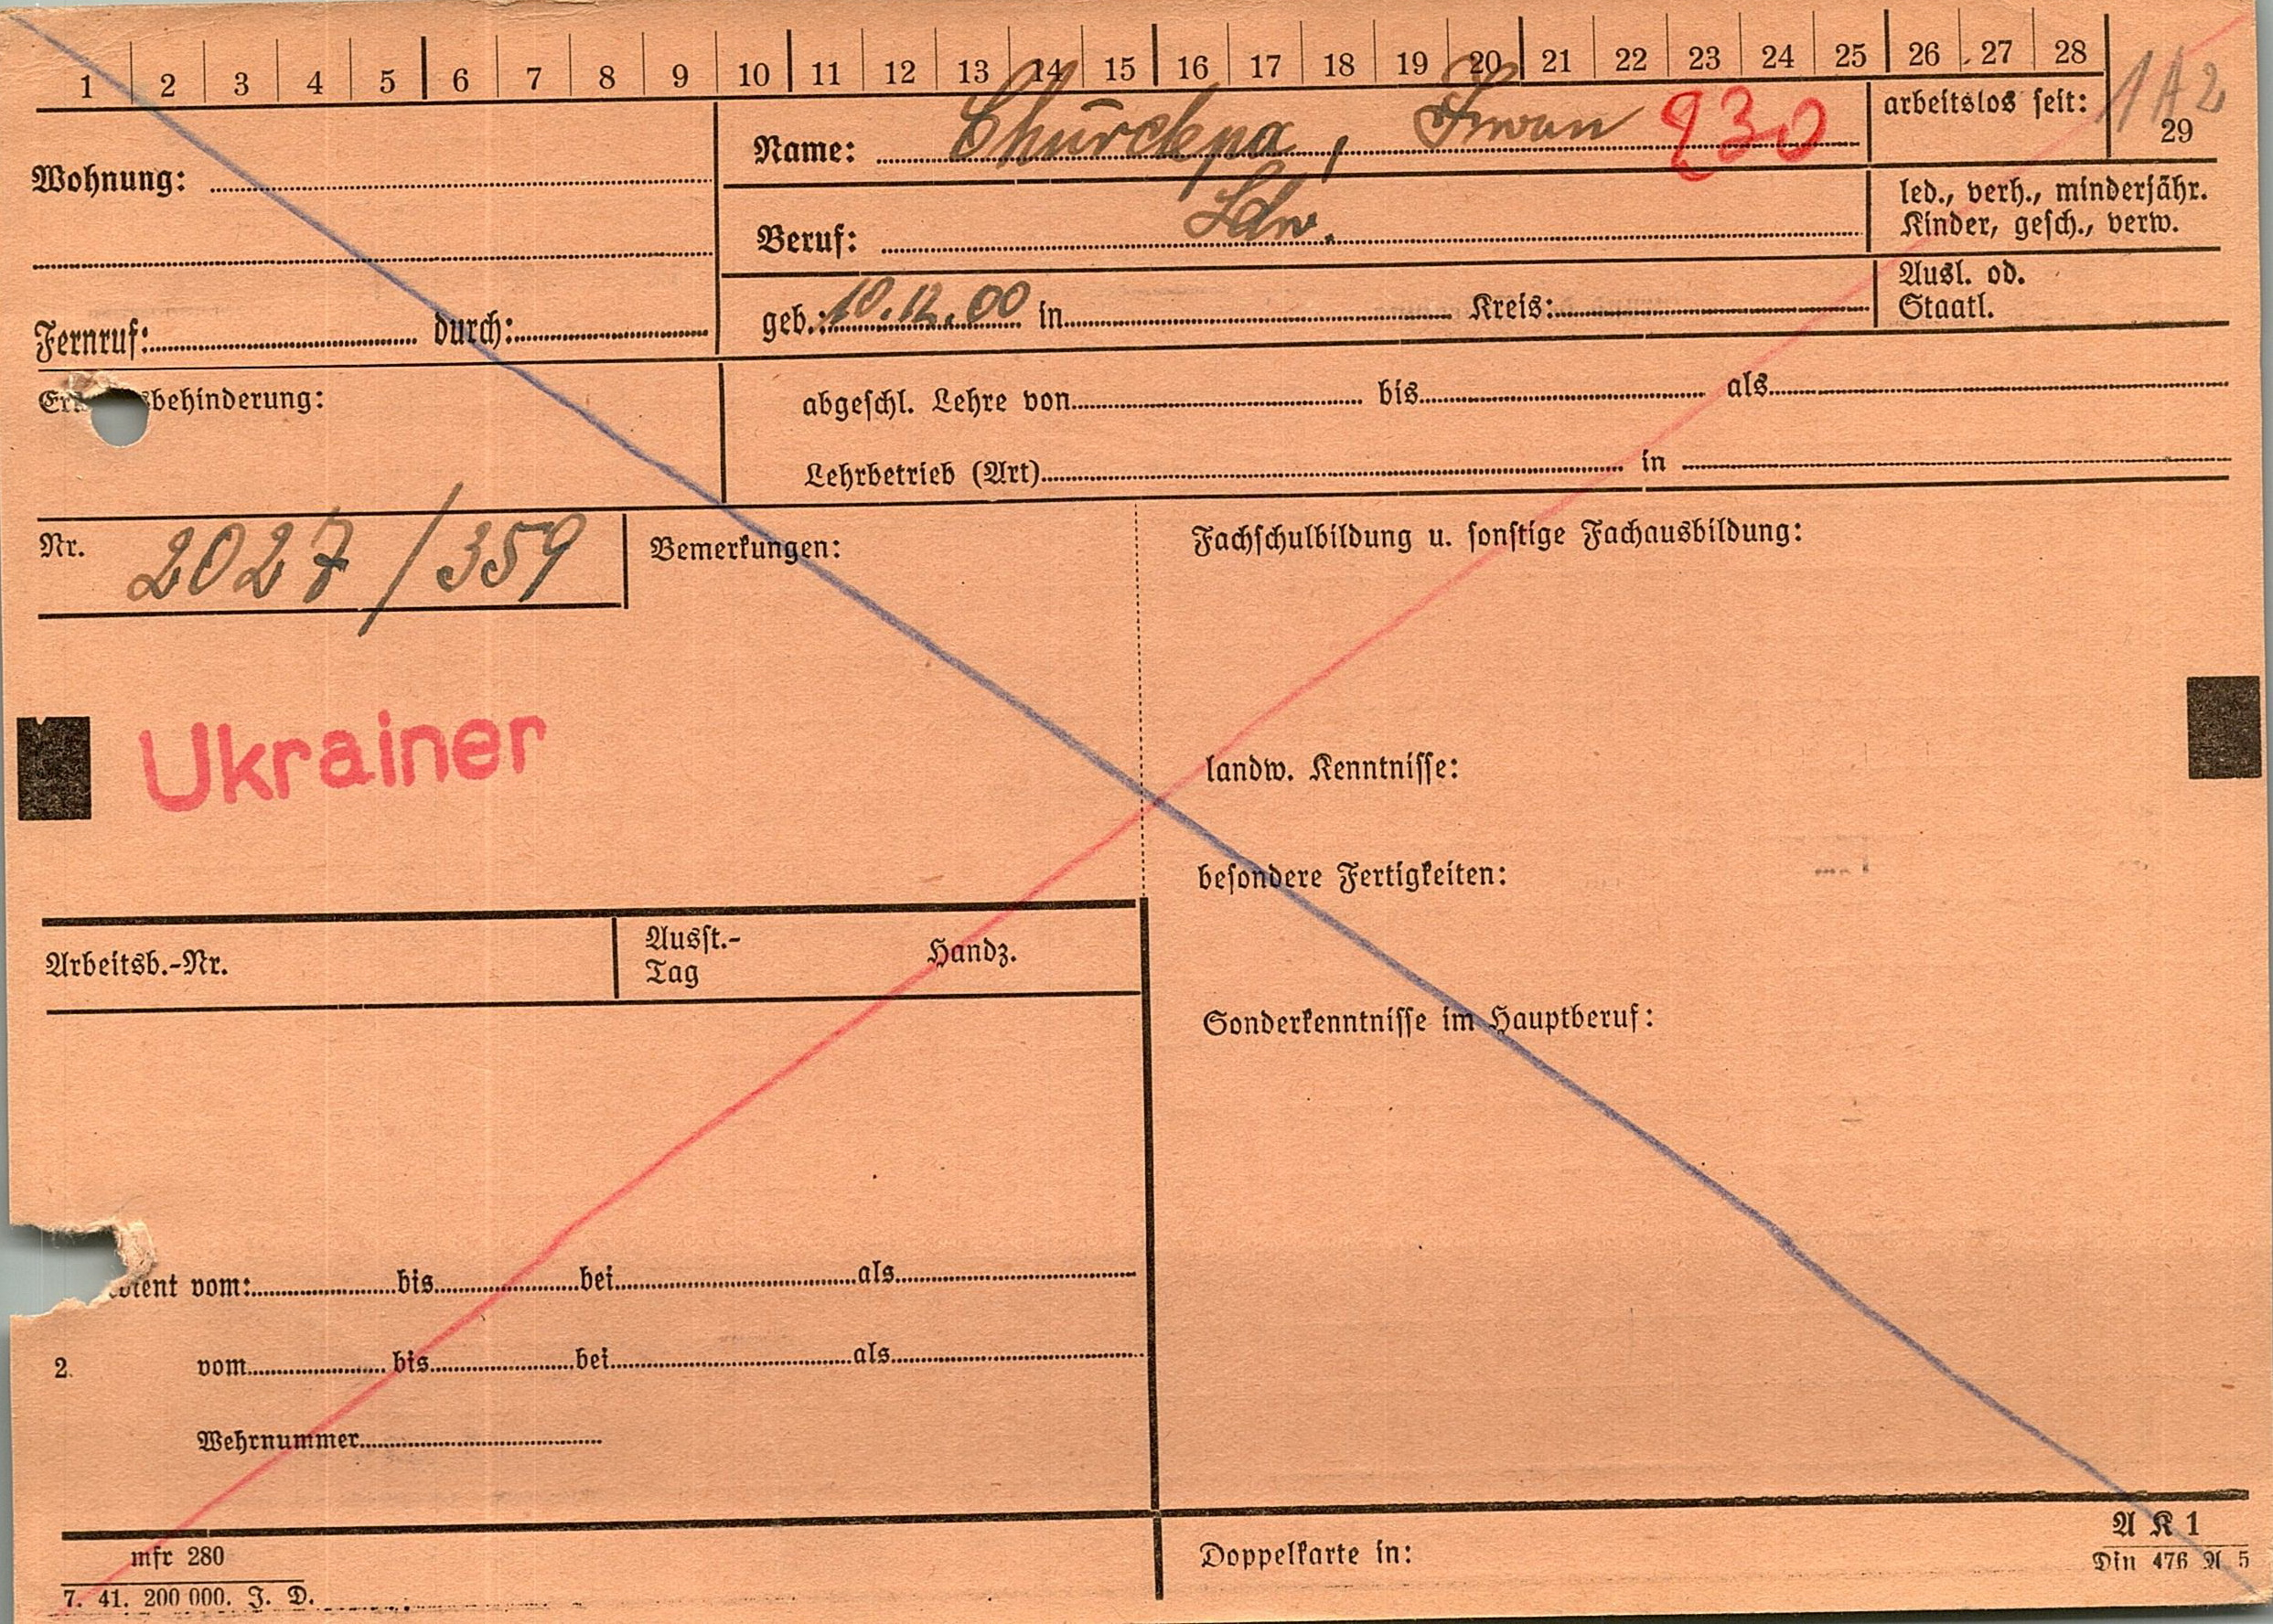 1 2 3 4 5 6 7 8 9 10 11 12 13 14 15 16 17 18 19 20 21 22 23 24 25 26 27 28
1A2
29
Wohnung:
Name: Churckpa, Iwan 230
arbeitslos seit:
Beruf: Ldw.
led., verh., minderjähr.
Kinder, gesch., verw.
Fernruf: durch:
geb.: 10.12.00 in Kreis:
Ausl. od.
Staatl.
sbehinderung:
abgeschl. Lehre von bis als
Lehrbetrieb (Art) in
Nr. 2027/359
Bemerkungen:
Fachschulbildung u. sonstige Fachausbildung:
Ukrainer
landw. Kenntnisse:
besondere Fertigkeiten:
Arbeitsb.-Nr.
Ausst.-
Tag
Handz.
Sonderkenntnisse im Hauptberuf:
dient vom: bis bei als
2. vom bis bei als
Wehrnummer
mfr 280
7. 41. 200 000. J. D.
Doppelkarte in:
A K 1
Din 476 A 5